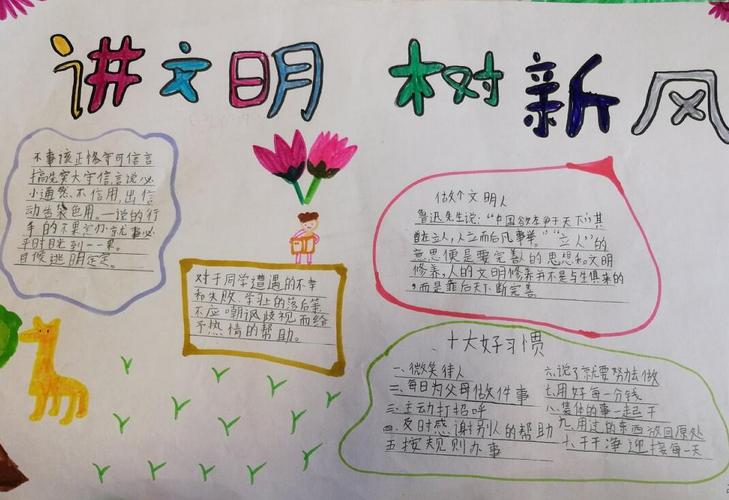 讲文明 树新风
不事该正修等可信言
搞诡突大宇信言说必
小通然不信用,出信
动当染色用。一说的行
手的不果必办 忘事必
平时目达到一一果。
日候逃明定定。
对于同学遭遇的不幸
和失败,学业的落后等
不应嘲讽歧视而给
予热情的帮助。
做个文明人
鲁迅先生说:"中国欲在争于天下其
首在立人,人立而后凡事举。""立人"的
意思便是要完善的思想和文明
修养,人的文明修养并不是与生俱来的
,而是靠后天下断完善
十大好习惯
一、微笑待人
二、每日为父母做件事
三、主动打招呼
四、及时感谢别人的帮助
五、按规则办事
六、说了就要努力做
七、用好每一分钱
八、集体的事一起干
九、用过的东西放回原处
十、干干净迎接每一天